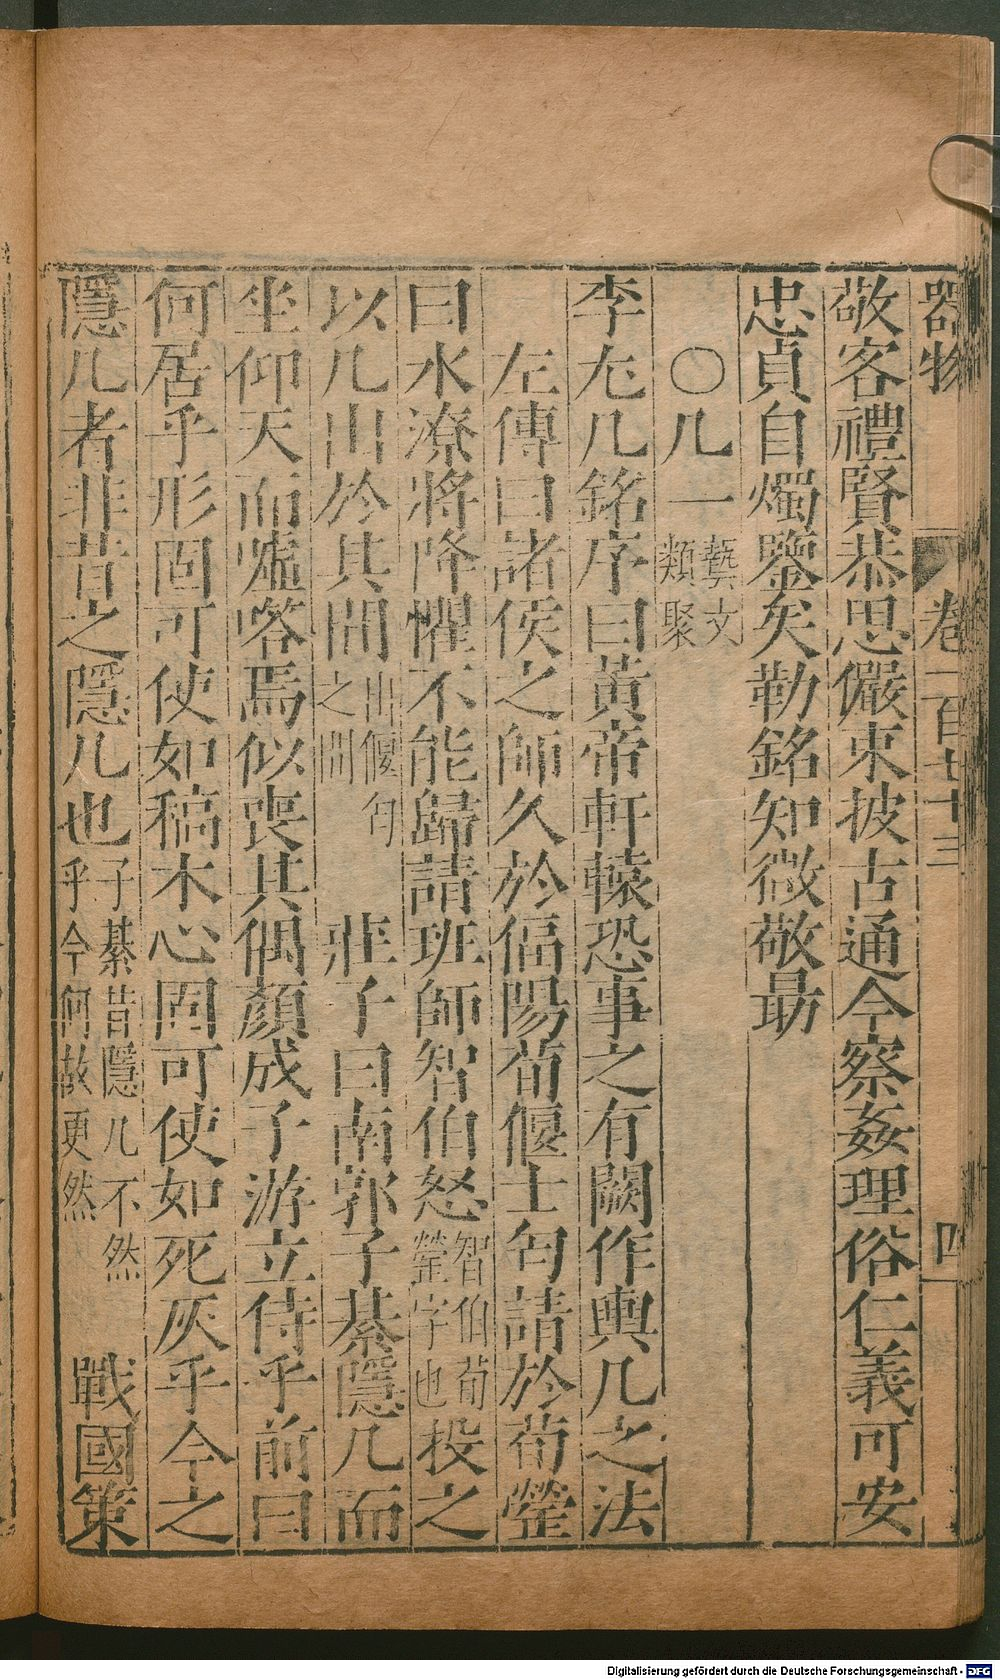 器物 卷一百七十三 四
敬客禮賢恭思儼束披古通今察姦理俗仁義可安
忠貞自燭鑒矣勒銘知微敬勗
〇几一藝文類聚
李尤几銘序曰黃帝軒轅恐事之有闕作輿几之法
左傳曰諸侯之師久於偪陽荀偃士匄請於荀罃
曰水潦將降懼不能歸請班師智伯怒智伯荀罃字也投之
以几出於其間出偃匄之間 莊子曰南郭子綦隱几而
坐仰天而噓嗒焉似喪其偶顏成子游立侍乎前曰
何居乎形固可使如稿木心固可使如死灰乎今之
隱几者非昔之隱几也子綦昔隱几不然乎今何故更然 戰國策
Digitalisierung gefördert durch die Deutsche Forschungsgemeinschaft - DFG